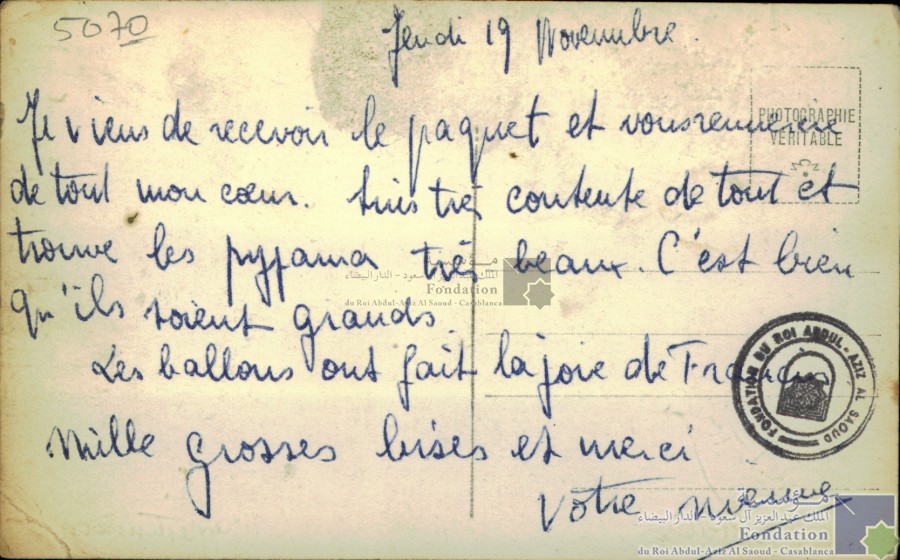 5070
Jeudi 19 Novembre.
Je viens de recevoir le paquet et vous remercie
PHOTOGRAPHIE
VÉRITABLE
de tout mon cœur. Suis très contente de tout et
trouve les pyjama très beaux. C'est bien
qu'ils soient grands.
Les ballons ont fait la joie de Francis
Mille grosses bises et merci
Votre
مؤسسة
الملك عبد العزيز آل سعود - الدار البيضاء
Fondation
du Roi Abdul-Aziz Al Saoud - Casablanca
FONDATION DU ROI ABDUL-AZIZ AL SAOUD
مؤسسة
الملك عبد العزيز آل سعود - الدار البيضاء
Fondation
du Roi Abdul-Aziz Al Saoud - Casablanca